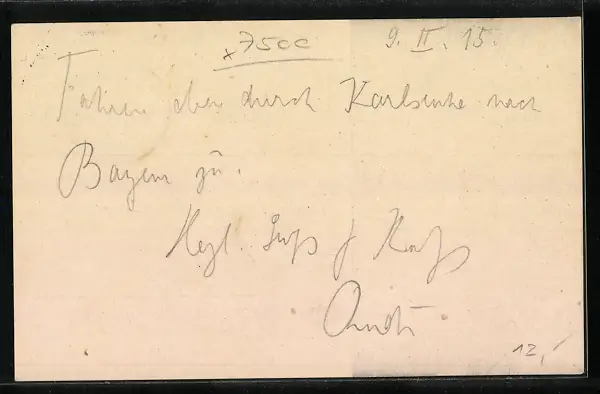 x 7500
9. II. 15.
Fahren eben durch Karlsruhe nach
Bayern zu.
Hzl. Gruß & Kuß
12,-